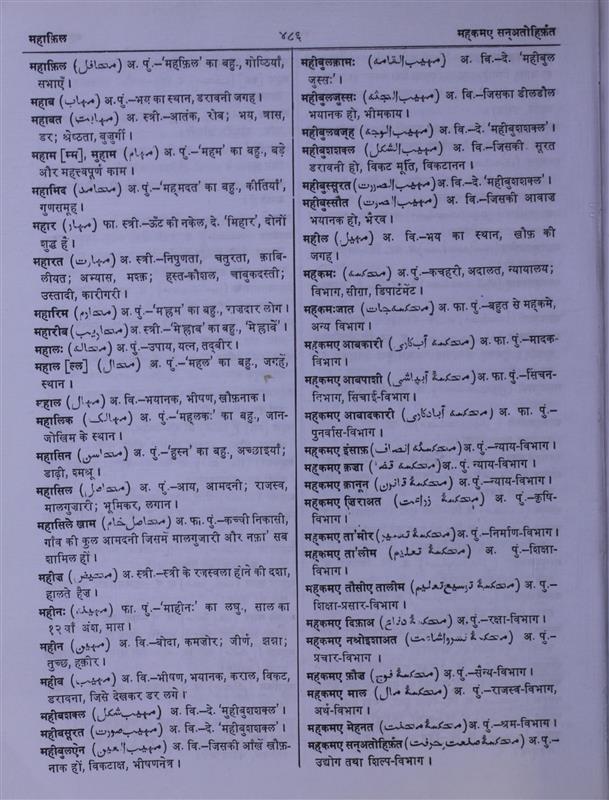 महाफ़िल
४८६
महकमए सन्अतोहिर्फ़त
महाफ़िल (محافل) अ. पुं.–'महफ़िल' का बहु., गोष्ठियाँ,
सभाएँ।
महाब (مهاب) अ. पुं.–भय का स्थान, डरावनी जगह।
महाबत (مهابت) अ. स्त्री.–आतंक, रोब; भय, त्रास,
डर; श्रेष्ठता, बुज़ुर्गी।
महाम [म्म], मुहाम (مهام) अ. पुं.–'महम' का बहु., बड़े
और महत्त्वपूर्ण काम।
महामिद (محامد) अ. पुं.–'मह्मदत' का बहु., कीर्तियाँ,
गुणसमूह।
महार (مهار) फा. स्त्री.–ऊँट की नकेल, दे. 'मिहार', दोनों
शुद्ध हैं।
महारत (مهارت) अ. स्त्री.–निपुणता, चतुरता, क़ाबि-
लीयत; अभ्यास, मश्क़; हस्त-कौशल, चाबुकदस्ती;
उस्तादी, कारीगरी।
महारिम (محارم) अ. पुं.–'मह्रम' का बहु., राज़दार लोग।
महारीब (محاريب) अ. स्त्री.–'मेह्राब' का बहु., 'मेह्राबें'।
महाल: (محاله) अ. पुं.–उपाय, यत्न, तद्बीर।
महाल [ल्ल] (محال) अ. पुं.–'महल' का बहु., जगहें,
स्थान।
हाल (مهال) अ. वि.–भयानक, भीषण, खौफ़नाक।
महालिक (مهالک) अ. पुं.–'महलक:' का बहु., जान-
जोखिम के स्थान।
महासिन (محاسن) अ. पुं.–'हुस्न' का बहु., अच्छाइयाँ;
डाढ़ी, श्मश्रू।
महासिल (محاصل) अ. पुं.–आय, आमदनी; राजस्व,
मालगुजारी; भूमिकर, लगान।
महासिले खाम (محاصل خام) अ. फा. पुं.–कच्ची निकासी,
गाँव की कुल आमदनी जिसमें मालगुजारी और नफ़ा' सब
शामिल हों।
महीज़ (محيض) अ. स्त्री.–स्त्री के रजस्वला होने की दशा,
हालते हैज़।
महीन: (مهينه) फा. पुं.–'माहीन:' का लघु., साल का
१२वाँ अंश, मास।
महीन (مهين) अ. वि.–बोदा, कमज़ोर; जीर्ण, झन्ना;
तुच्छ, हक़ीर।
महीब (مهيب) अ. वि.–भीषण, भयानक, कराल, विकट,
डरावना, जिसे देखकर डर लगे।
महीबशक्ल (مهيب شکل) अ. वि.–दे. 'मुहीबुशशक्ल'।
महीबसूरत (مهيب صورت) अ. वि.–दे. 'महीबुशशक्ल'।
महीबुलऐन (مهيب العين) अ. वि.–जिसकी आँखें खौफ़-
नाक हों, विकटाक्ष, भीषणनेत्र।
महीबुलक़ाम: (مهيب القامه) अ. वि.–दे. 'महीबुल
जुस्स:'।
महीबुलजुस्स: (مهيب الجثه) अ. वि.–जिसका डीलडौल
भयानक हो, भीमकाय।
महीबुलवज्ह (مهيب الوجه) अ. वि.–दे. 'महीबुशशक्ल'।
महीबुशशक्ल (مهيب الشکل) अ. वि.–जिसकी सूरत
डरावनी हो, विकट मूर्ति, विकटानन।
महीबुस्सूरत (مهيب الصورت) अ. वि.–दे. 'महीबुशशक्ल'।
महीबुस्सौत (مهيب الصوت) अ. वि.–जिसकी आवाज़
भयानक हो, भैरव।
महील (مهيل) अ. वि.–भय का स्थान, खौफ़ की
जगह।
महकम: (محکمه) अ. पुं.–कचहरी, अदालत, न्यायालय;
विभाग, सीग़ा, डिपार्टमेंट।
महकम:जात (محکمه جات) अ. फा. पुं.–बहुत से महकमे,
अन्य विभाग।
महकमए आबकारी (محکمۂ آبکاری) अ. फा. पुं.–मादक-
विभाग।
महकमए आबपाशी (محکمۂ آبپاشی) अ. फा. पुं.–सिंचन-
विभाग, सिंचाई-विभाग।
महकमए आबादकारी (محکمۂ آبادکاری) अ. फा. पुं.–
पुनर्वास-विभाग।
महकमए इंसाफ़ (محکمۂ انصاف) अ. पुं.–न्याय-विभाग।
महकमए क़ज़ा (محکمۂ قضا) अ.. पुं. न्याय-विभाग।
महकमए क़ानून (محکمۂ قانون) अ. पुं.–न्याय-विभाग।
महकमए ज़िराअत (محکمۂ زراعت) अ. पुं.–कृषि-
विभाग।
महकमए ता'मीर (محکمۂ تعمير) अ. पुं.–निर्माण-विभाग।
महकमए ता'लीम (محکمۂ تعليم) अ. पुं.–शिक्षा-
विभाग।
महकमए तौसीए तालीम (محکمۂ توسيع تعليم) अ. पुं.–
शिक्षा-प्रसार-विभाग।
महकमए दिफ़ाअ (محکمۂ دفاع) अ. पुं.–रक्षा-विभाग।
महकमए नश्रोइशाअत (محکمۂ نشرواشاعت) अ. पुं.–
प्रचार-विभाग।
महकमए फ़ौज (محکمۂ فوج) अ. पुं.–सैन्य-विभाग।
महकमए माल (محکمۂ مال) अ. पुं.–राजस्व-विभाग,
अर्थ-विभाग।
महकमए मेहनत (محکمۂ محنت) अ. पुं.–श्रम-विभाग।
महकमए सन्अतोहिर्फ़त (محکمۂ صنعت و حرفت) अ. पुं.–
उद्योग तथा शिल्प-विभाग।